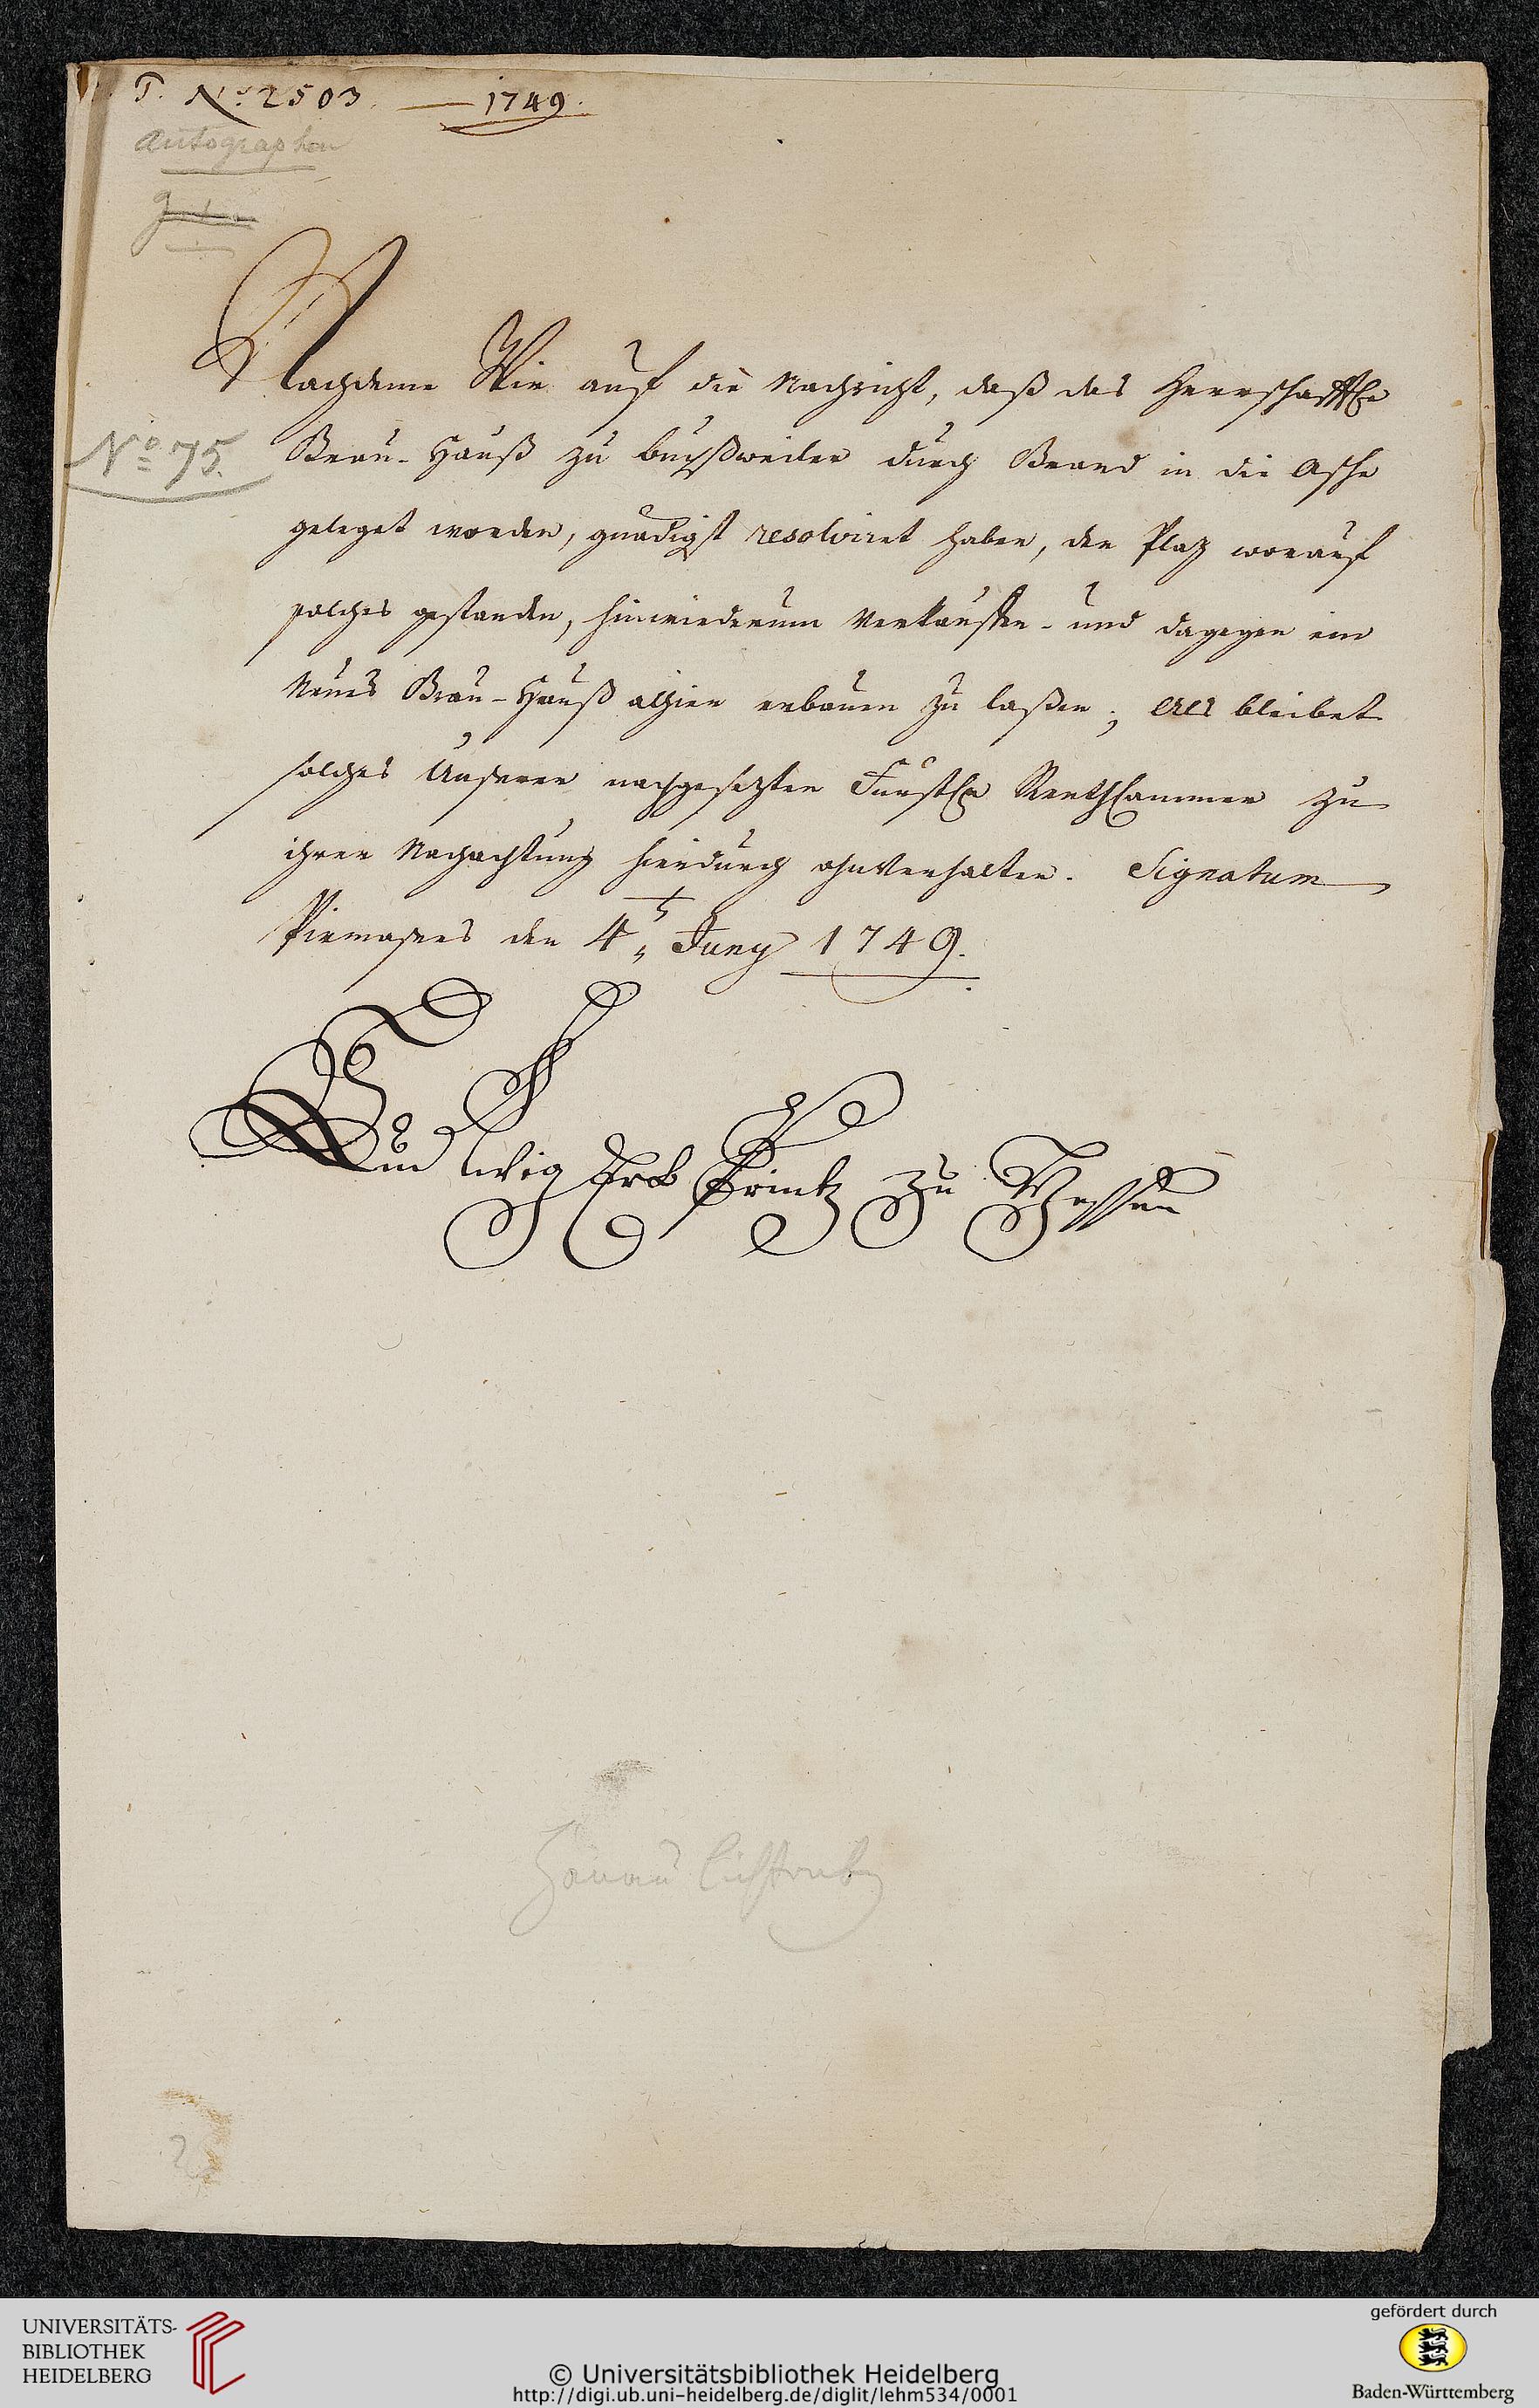 T. No. 2503. — 1749.
Autographen
No 75.
Nachdeme Wir auf die Nachricht, daß das Herrschafftl.
Brau-Hauß zu Buchßweiler durch Brand in die Asche
geleget worden, gnädigst resolviret haben, den Plaz worauf
solches gestanden, hinwiederum verkauffen- und dagegen ein
Neues Brau-Hauß alhier erbauen zu laßen; Als bleibet
solches Unserer nachgesezten Fürstl. RenthCammer zu
ihrer Nachachtung hierdurch ohnverhalten. Signatum
Pirmasens den 4t. Juny 1749.
Ludwig Erb Printz zu Hessen
Hanau Lichtenbg
2
UNIVERSITÄTS-
BIBLIOTHEK
HEIDELBERG
© Universitätsbibliothek Heidelberg
http://digi.ub.uni-heidelberg.de/diglit/lehm534/0001
gefördert durch
Baden-Württemberg